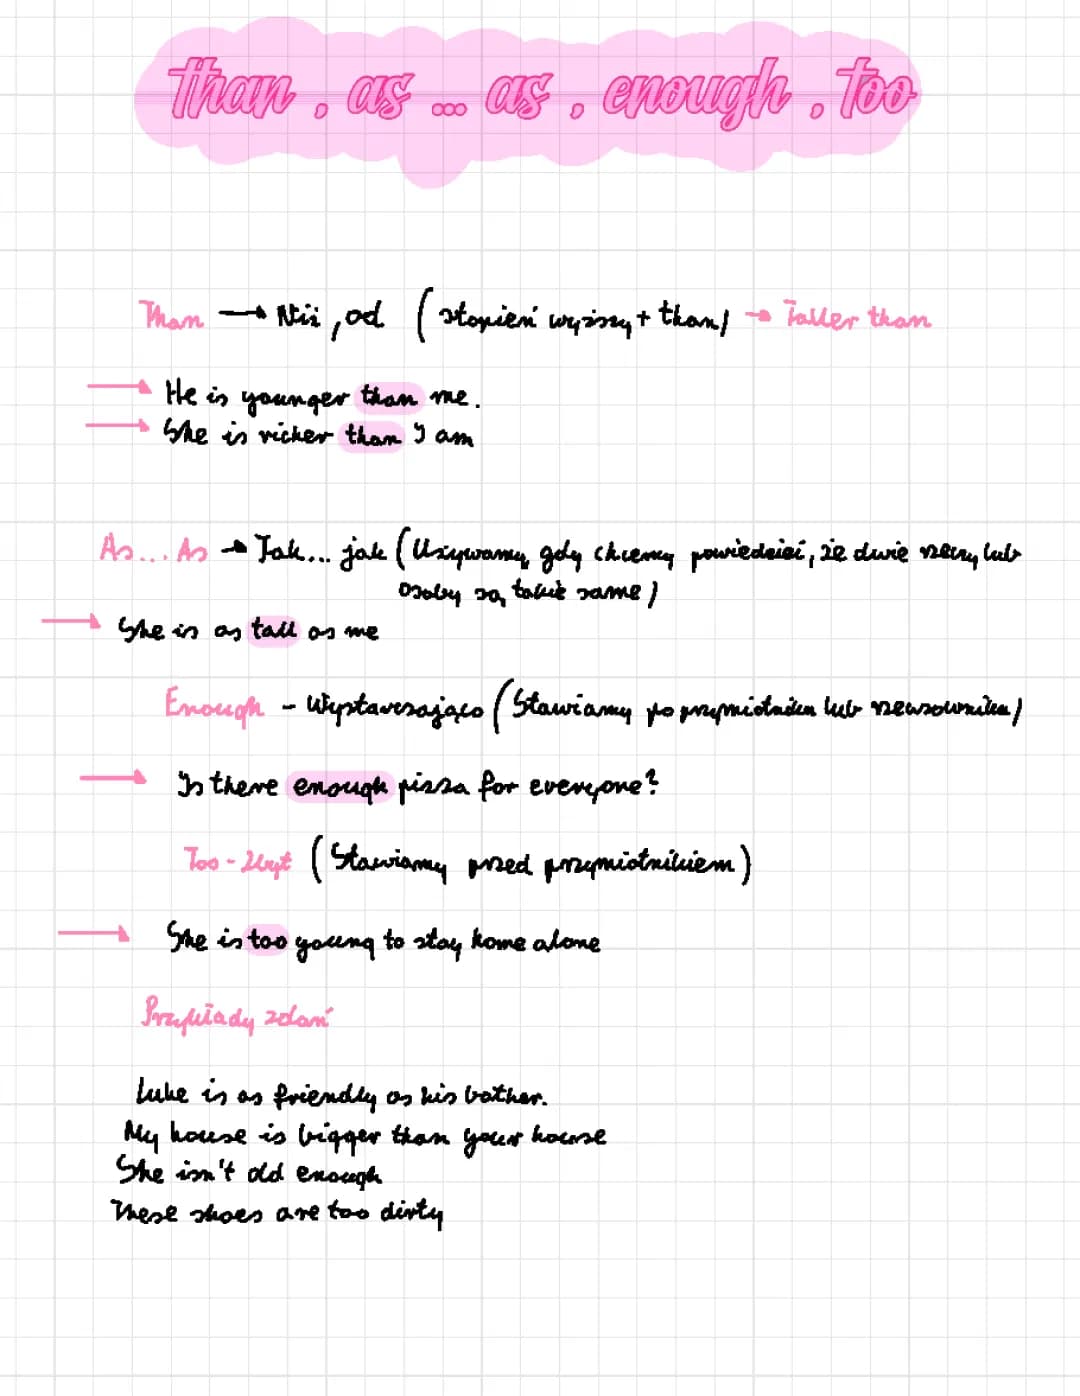 than, as ... as, enough, too
Than → Niż, od (stopień wyższy + than) → Taller than
→ He is younger than me.
→ She is richer than I am
As... As → Tak... jak (Używamy, gdy chcemy powiedzieć, że dwie rzeczy lub
osoby są takie same)
→ She is as tall as me
Enough - Wystarczająco (Stawiamy po przymiotniku lub rzeczowniku)
→ Is there enough pizza for everyone?
Too - Zbyt (Stawiamy przed przymiotnikiem)
→ She is too young to stay home alone
Przykłady zdań
Luke is as friendly as his bother.
My house is bigger than your house
She isn't old enough
These shoes are too dirty